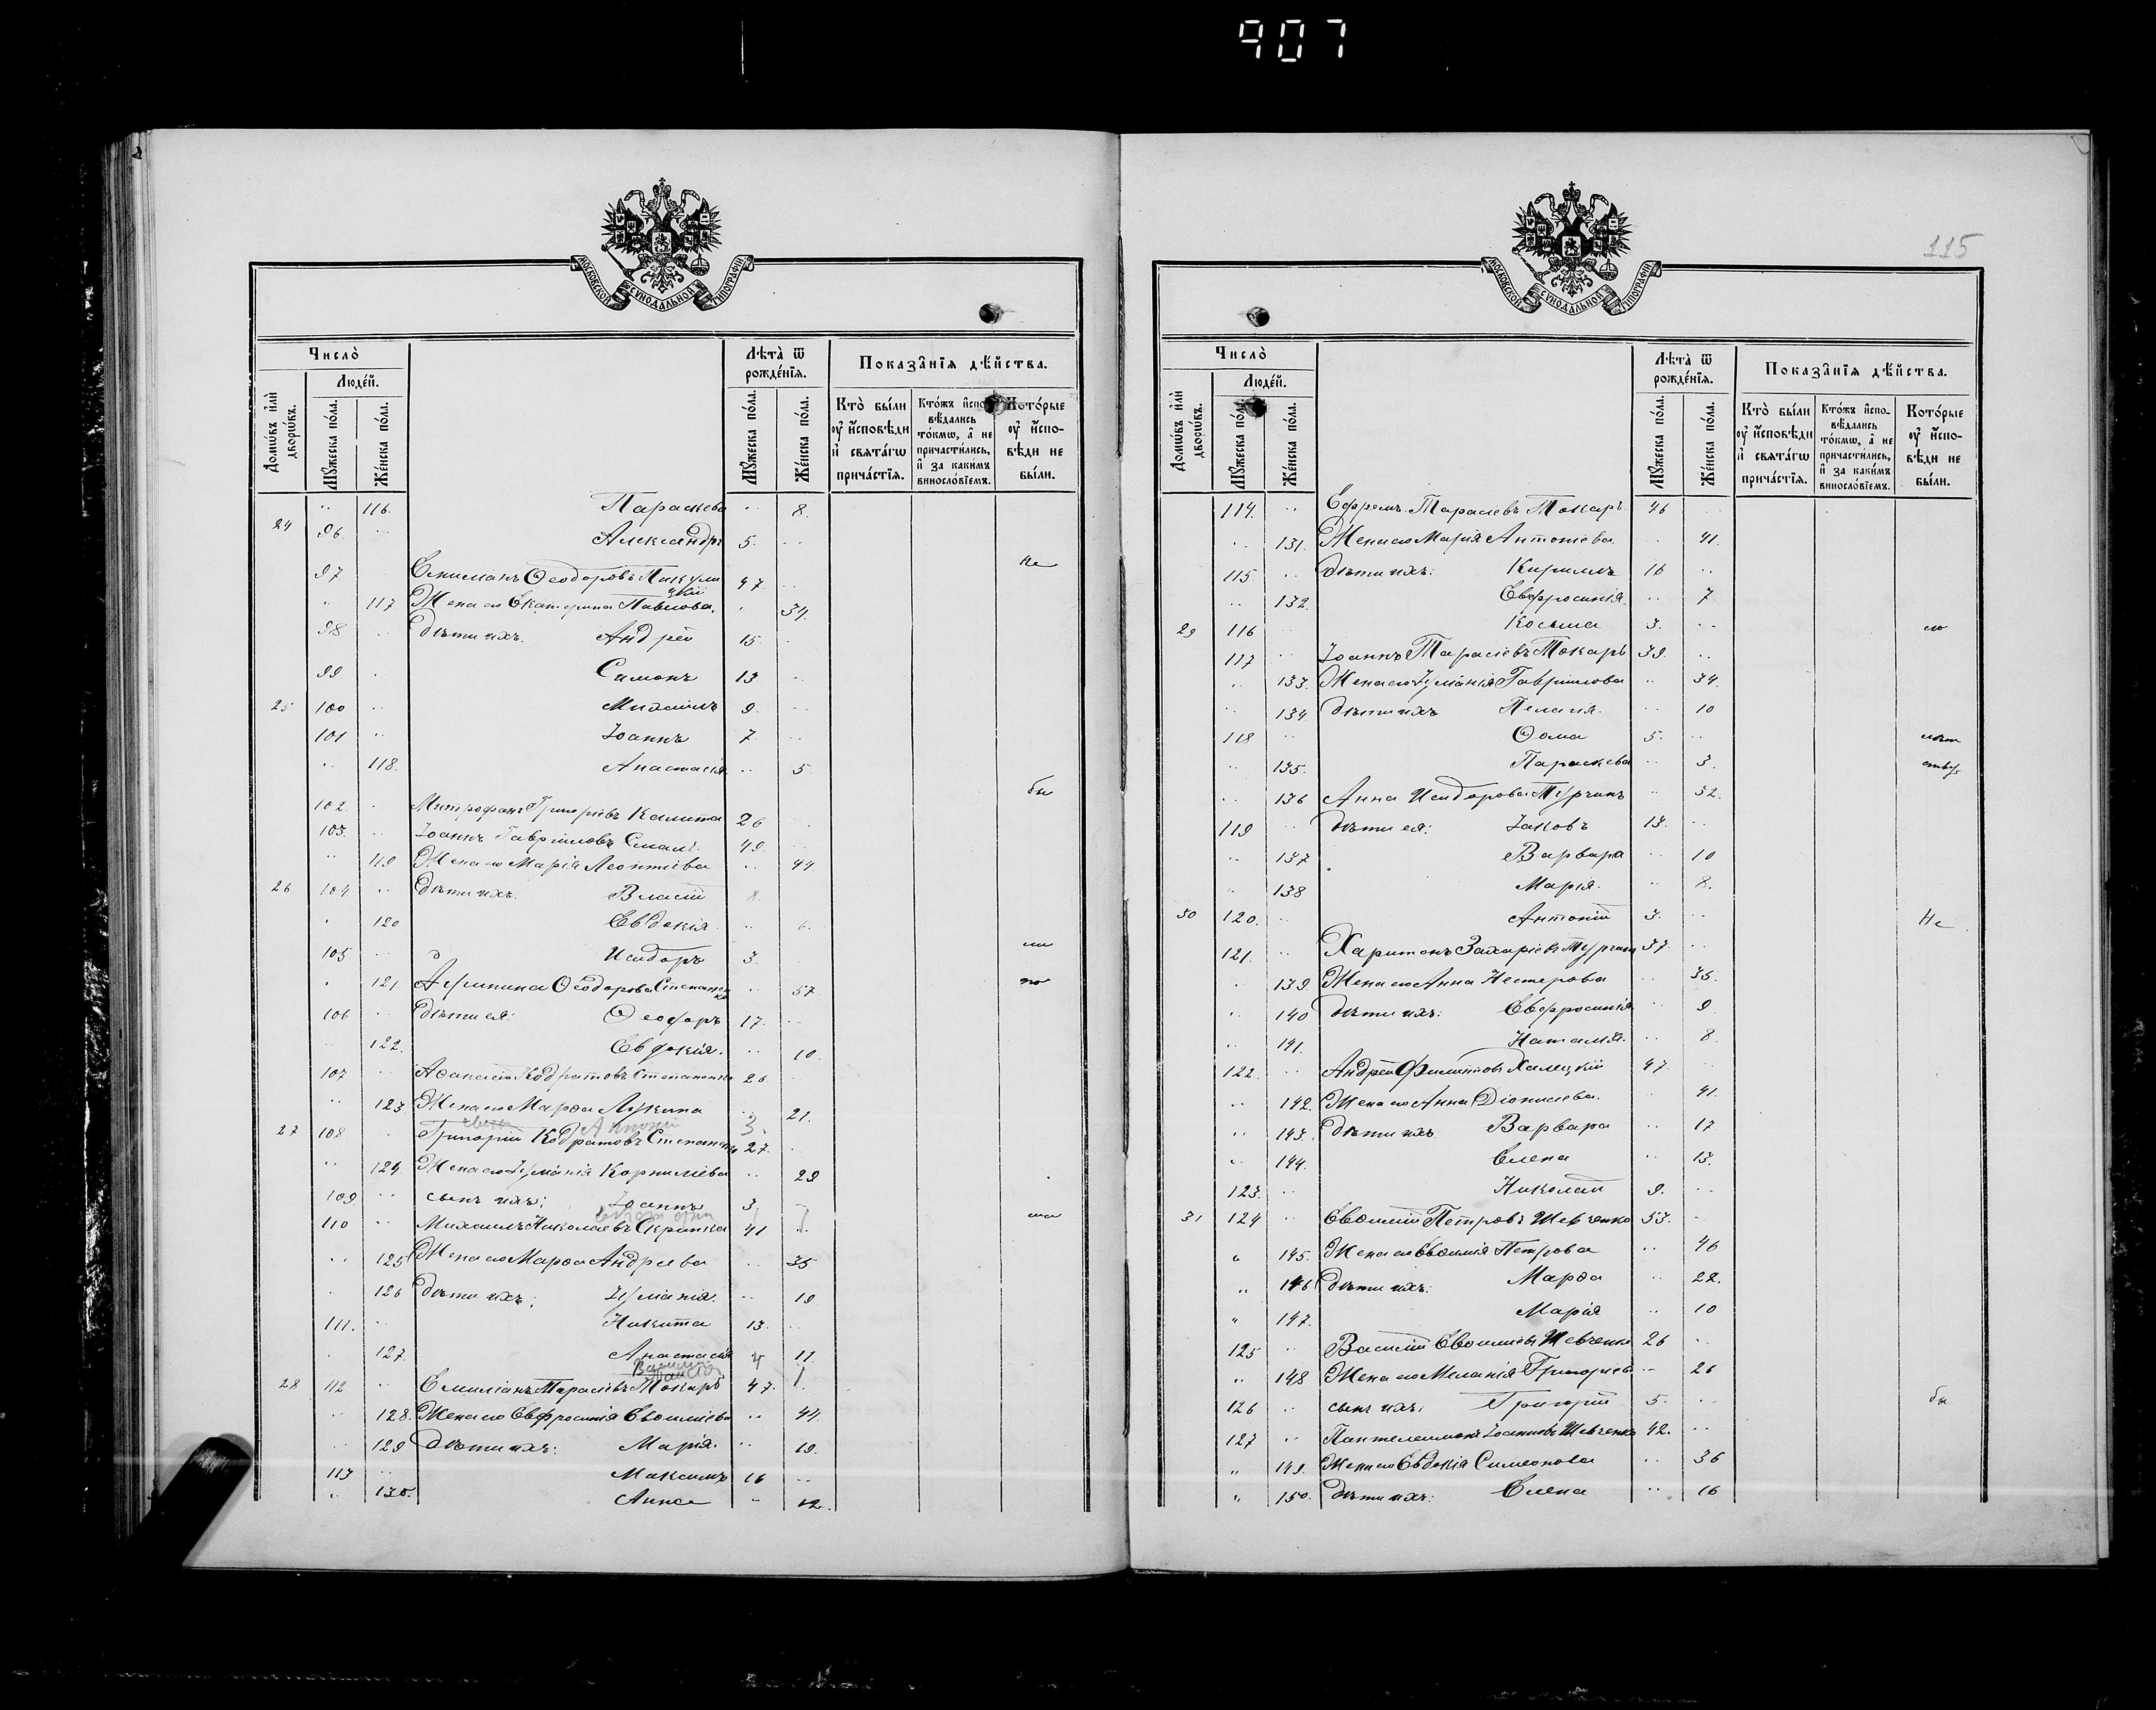 907
МОСКОВСКОЙ СѴНОДАЛЬНОЙ ТИПОГРАФІИ
Число̀
Лѣта̀ ѿ рожде́нїѧ.
Показа̑нїѧ дѣ́йства.
Домѡ́въ и҆лѝ дворѡ́въ.
Люде́й.
Мꙋ́жеска по́ла.
Же́нска по́ла.
Мꙋ́жеска по́ла.
Же́нска по́ла.
Кто̀ бы́ли оу҆ и҆сповѣ́ди и҆ свѧта́гѡ прича́стїѧ.
Кто́жъ и҆сповѣ́дались то́кмѡ, а҆ не причасти́лись, и҆ за каки́мъ винносло́вїемъ.
Кото́рые оу҆ и҆сповѣ́ди не бы́ли.
" 116. Параскева " 8.
24 96 " Александръ 5. "
97 Ѳеодоровъ 47 " Не
" 117 Жена его Екатерина Павлова. " 34.
98 " дѣти ихъ. Андрей 15 "
99 " Симонъ 13 "
25 100 " Михаилъ 9. "
101 " Іоаннъ 7. "
" 118. Анастасія " 5
102. " Митрофанъ Григоріевъ Калита 26 бы
103. " Іоаннъ Гавріиловъ 49
" 119 Жена его Марія Леонтіева " 44.
26 104 " дѣти ихъ. Власій 8.
" 120 Евдокія " 6.
105 " Исидоръ 3. ли
" 121 Агрипина Ѳеодорова Степаненко " 57 по
106 " дѣти ея: 17. "
122. Евдокія. " 10.
107 " Кодратовъ Степаненко 26
" 123 Жена его Марѳа Лукина " 21.
3.
27 108 " Григорій Кодратовъ Степаненко 27.
" 124 Жена его Іуліанія Корниліева " 29
109 " сынъ ихъ: Іоаннъ 3
110 " Михаилъ Николаевъ 41
" 125 Жена его Марѳа Андреева " 35
" 126 дѣти ихъ: Іуліанія. " 19
111. " Никита 13. "
" 127. Анастасія 11.
28 112 " Емиліанъ Тарасіевъ Токарь 47.
" 128. Жена его Евфросинія Евѳиміева " 44.
" 129 дѣти ихъ: Марія. " 19.
113 " Максимъ 16 "
" 130. Анна " 12.
115
МОСКОВСКОЙ СѴНОДАЛЬНОЙ ТИПОГРАФІИ
Число̀
Лѣта̀ ѿ рожде́нїѧ.
Показа̑нїѧ дѣ́йства.
Домѡ́въ и҆лѝ дворѡ́въ.
Люде́й.
Мꙋ́жеска по́ла.
Же́нска по́ла.
Мꙋ́жеска по́ла.
Же́нска по́ла.
Кто̀ бы́ли оу҆ и҆сповѣ́ди и҆ свѧта́гѡ прича́стїѧ.
Кто́жъ и҆сповѣ́дались то́кмѡ, а҆ не причасти́лись, и҆ за каки́мъ винносло́вїемъ.
Кото́рые оу҆ и҆сповѣ́ди не бы́ли.
114. " Ефремъ Тарасіевъ Токарь 46
" 131. Жена его Марія Антоніева " 41.
115 " дѣти ихъ: Кириллъ 16 "
" 132. Евфросинія. " 7.
29 116 " Косьма 3. "
117 " Іоаннъ Тарасіевъ Токарь 39. "
" 133. Жена его Іуліанія Гавріилова " 34.
" 134 дѣти ихъ Пелагія. " 10
118 " Ѳома 5. "
" 135. Параскева " 3.
" 136 Анна Исидорова Турчинъ " 32.
119 " дѣти ея: Іаковъ 13. "
" 137 Варвара " 10
" 138 Марія. " 8.
30 120. " Антоній 3. " Не
121. " Харитонъ Захаріевъ Турчинъ 37. "
" 139. Жена его Анна Нестерова " 35.
" 140 дѣти ихъ: Евфросинія " 9
" 141. Наталія. " 8.
122. " Андрей Филиповъ 47. "
" 142. Жена его Анна Діонисіева. " 41.
" 143. дѣти ихъ Варвара " 17
" 144. Елена " 13.
123. " Николай 9. "
31 124 " Евѳимій Петровъ Шевченко 53. "
" 145. Жена его Евѳимія Петрова " 46
" 146 дѣти ихъ: Марѳа " 22.
" 147. Марія " 10
125 " Василій Евѳиміевъ Шевченко 26 "
" 148 Жена его Меланія Григоріева " 26
126 " сынъ ихъ: Григорій 5. " бы
127 " Пантелеимонъ Іоанновъ Шевченко 42. "
" 149. Жена его Евдокія Симеонова " 36
" 150. дѣти ихъ: Елена " 16